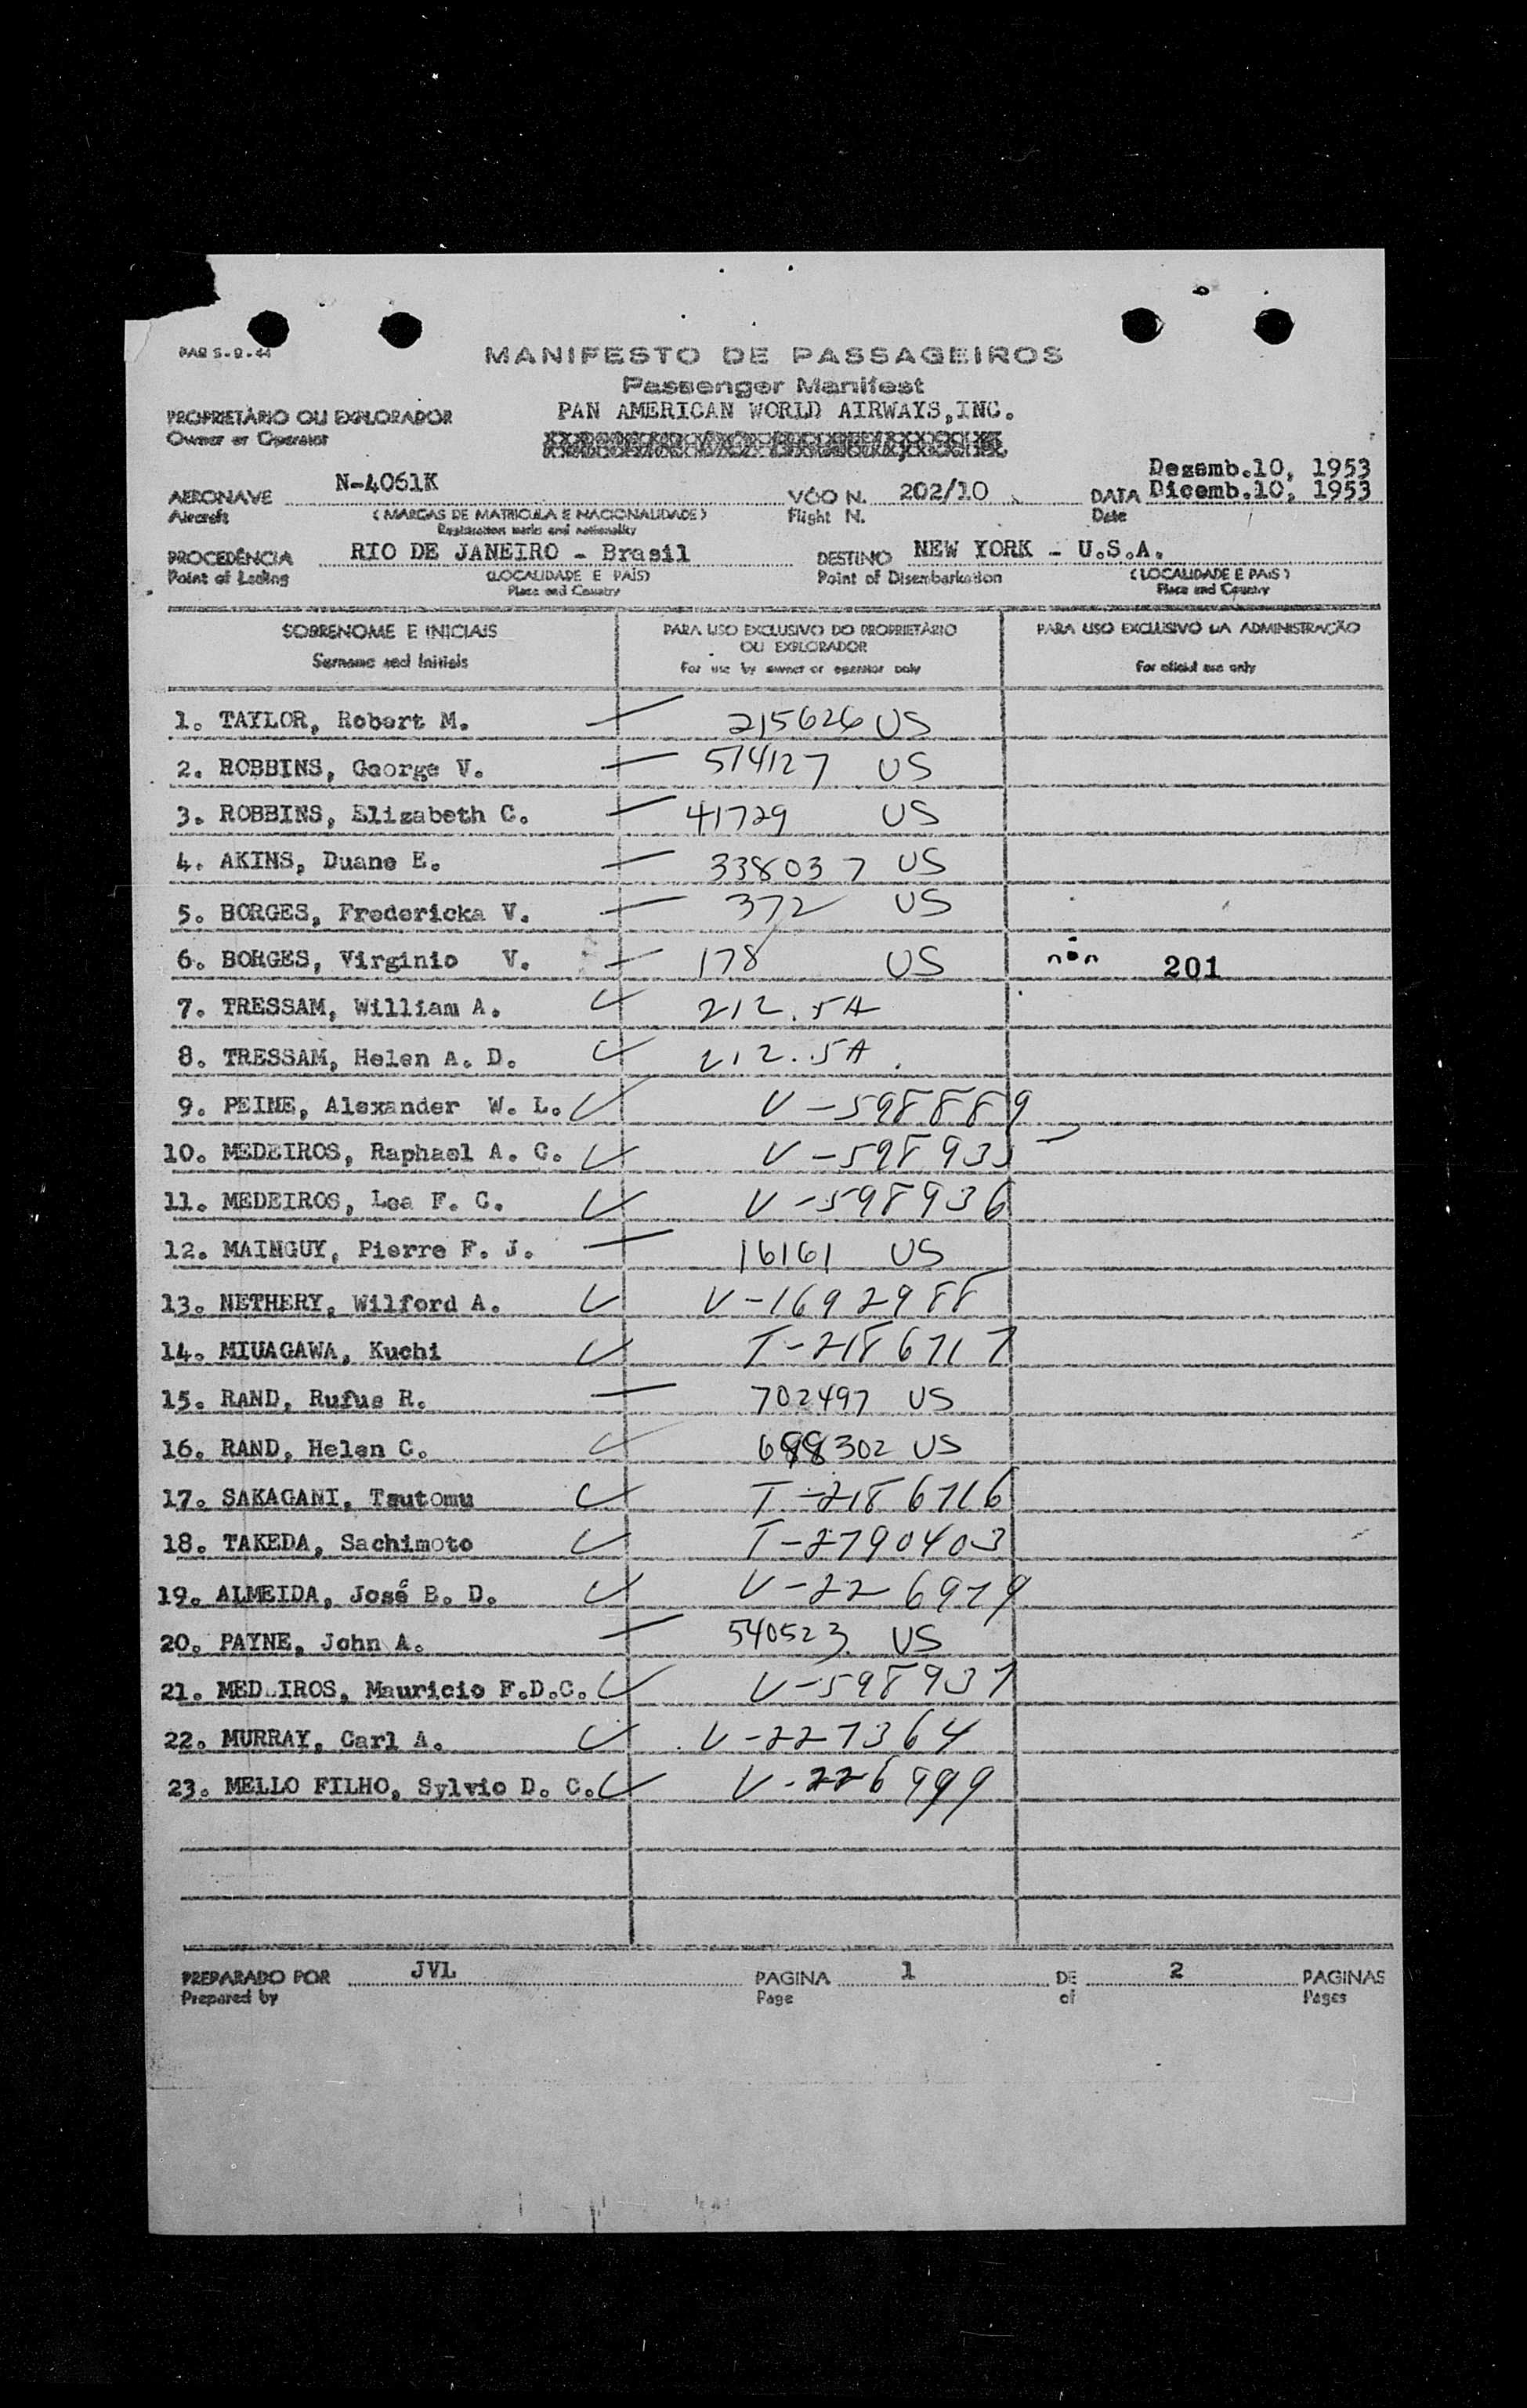 PAB S-9-44
MANIFESTO DE PASSAGEIROS
Passenger Manifest
PROPRIETÁRIO OU EXPLORADOR PAN AMERICAN WORLD AIRWAYS,INC.
Owner or Operator
Dezemb.10, 1953
AERONAVE N-4061K VÔO N. 202/10 DATA Dicemb.10, 1953
Aircraft (MARCAS DE MATRICULA E NACIONALIDADE) Flight N. Date
Registration marks and nationality
PROCEDÊNCIA RIO DE JANEIRO - Brasil DESTINO NEW YORK - U.S.A.
Point of Lading (LOCALIDADE E PAÍS) Point of Disembarkation (LOCALIDADE E PAÍS)
Place and Country Place and Country
SOBRENOME E INICIAIS PARA USO EXCLUSIVO DO PROPRIETÁRIO PARA USO EXCLUSIVO DA ADMINISTRAÇÃO
OU EXPLORADOR
Surname and Initials For use by owner or operator only For oficial use only
1. TAYLOR, Robert M. 215626 US
2. ROBBINS, George V. 574127 US
3. ROBBINS, Elizabeth C. 41729 US
4. AKINS, Duane E. 338037 US
5. BORGES, Fredericka V. 372 US
6. BORGES, Virginio V. 178 US 201
7. TRESSAM, William A. 212.5A
8. TRESSAM, Helen A. D. 212.5A.
9. PEINE, Alexander W. L. V-598889
10. MEDEIROS, Raphael A. C. V-598935
11. MEDEIROS, Lea F. C. V-598936
12. MAINGUY, Pierre F. J. 16161 US
13. NETHERY, Wilford A. V-1692988
14. MIUAGAWA, Kuchi T-2186717
15. RAND, Rufus R. 702497 US
16. RAND, Helen C. 698302 US
17. SAKAGANI, Tsutomu T-2186716
18. TAKEDA, Sachimoto T-2790403
19. ALMEIDA, José B. D. V-226979
20. PAYNE, John A. 540523 US
21. MED.IROS, Mauricio F.D.C. V-598937
22. MURRAY, Carl A. V-227364
23. MELLO FILHO, Sylvio D. C. V-226999
PREPARADO POR JVL PAGINA 1 DE 2 PAGINAS
Prepared by Page of Pages